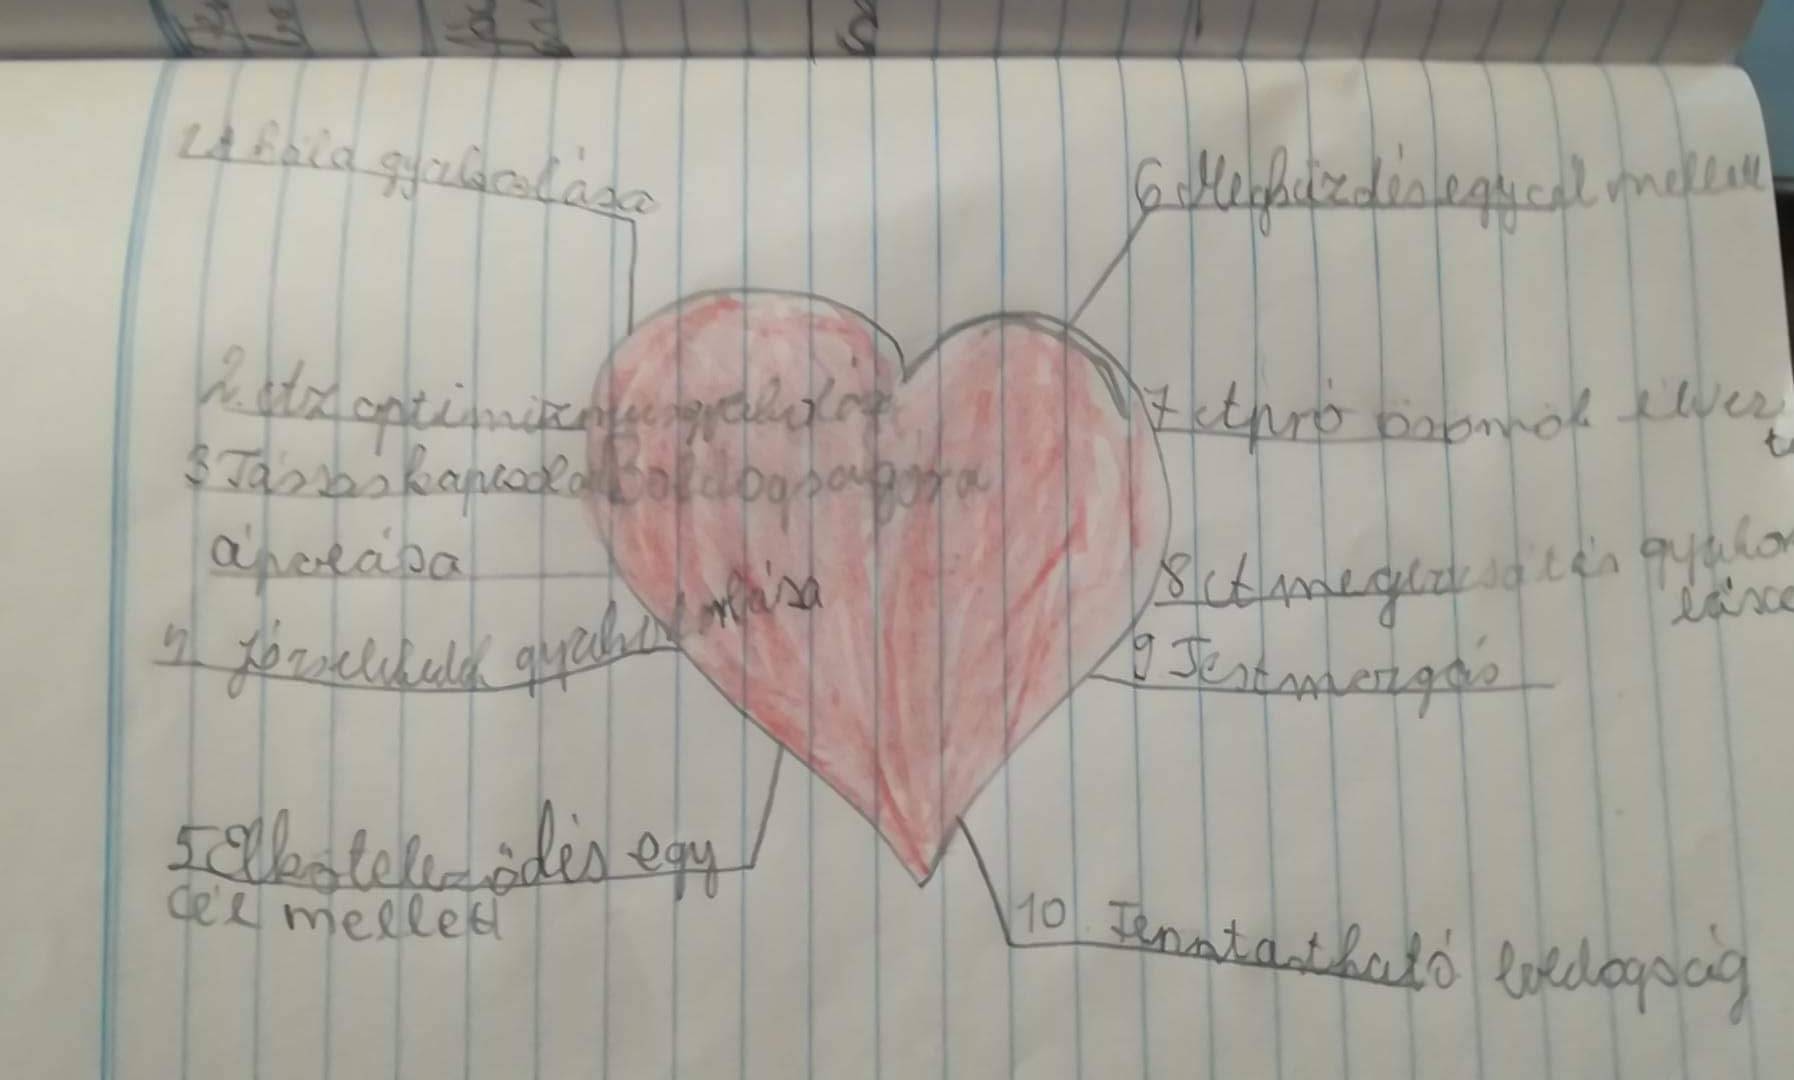 1 A gyakorlása
2. Az optimizmus gyakorlás
3 Társas kapcsola Boldogságóra
ápolása
4 gyakorlása
5 Elköteleződés egy
cél mellett
6 Megküzdés egy cél mellett
7 Apró örömök élvez
8 A megbocsátás gyakor
lása
9 Testmozgás
10 Fenntartható boldogság